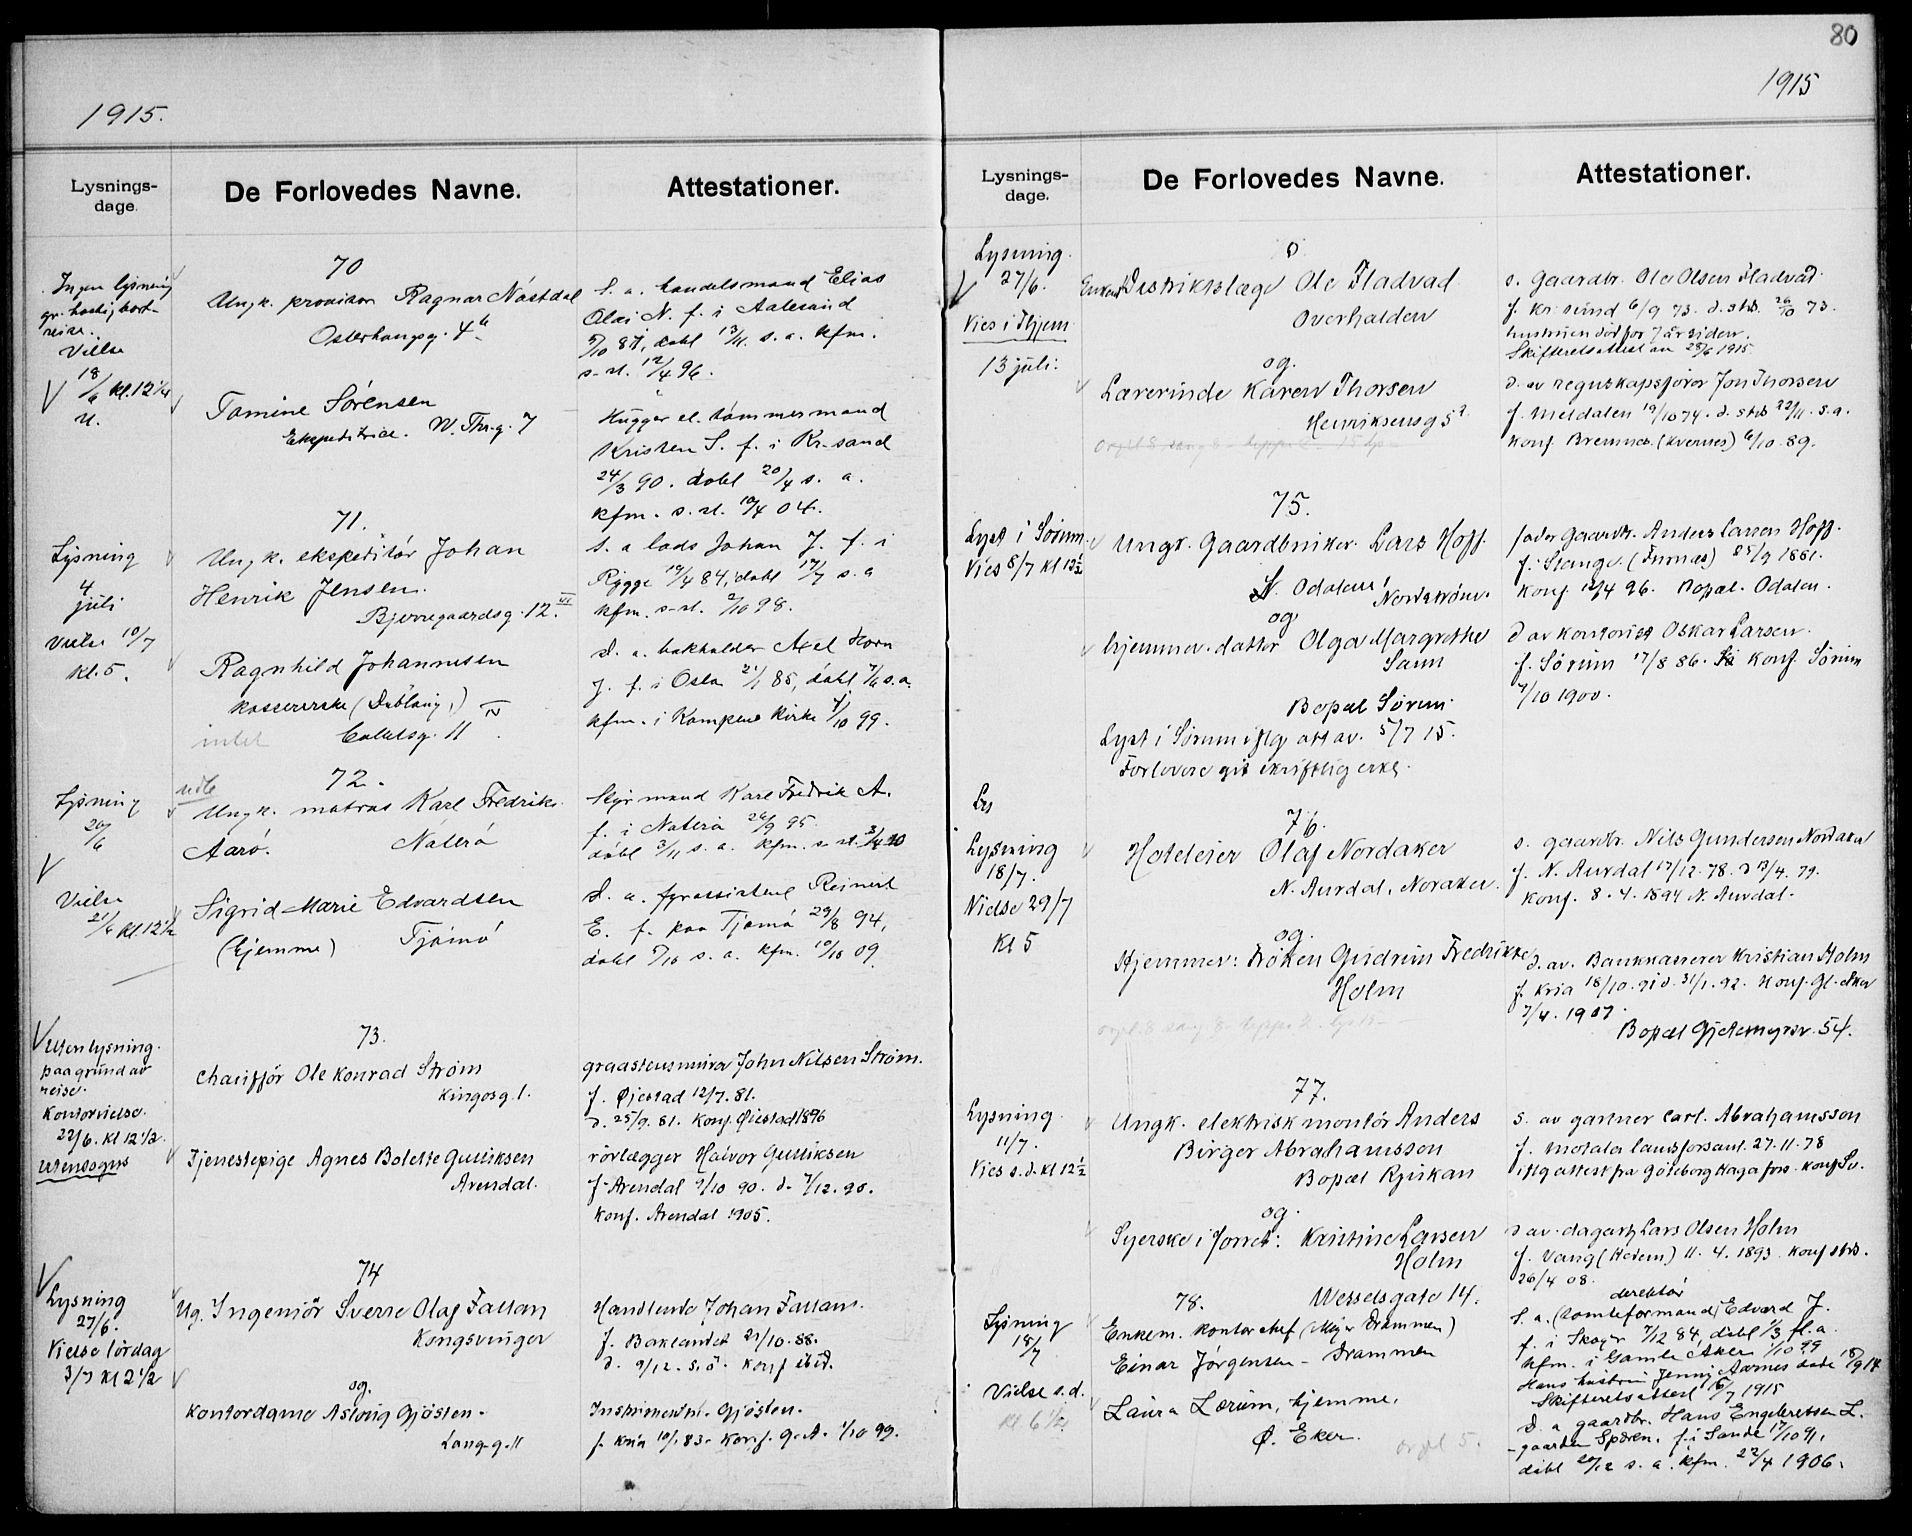 80
1915.
1915
Lysnings-
dage.
De Forlovedes Navne.
Attestationer.
Ingen lysning
reise.
Vielse
18/6 kl. 12 1/4
70
Ungk. provisor Ragnar Nåstdal
Osterhausg. 4b
S. a. handelsmand Elias
Olai N. f. i Aalesund
døbt 13/11. s. a. kfm.
s. st. 12/4 96.
Tomine Sørensen
Ekspeditrice. W. Thr. g. 7
Hugger el. tømmermand
Kristen S. f. i Kr.sand
24/3 90. døbt 20/4 s. a.
kfm. s. st. 10/4 04.
Lysning
4
juli
Vielse 10/7
kl. 5.
71.
Ungk. ekspeditør Johan
Henrik Jensen.
Bjerregaardsg. 12. VI
S. a lods Johan J. f. i
Rygge 19/4 84, døbt 17/7 s. a
kfm. s. st. 2/10 98.
Ragnhild Johannesen
kassererske
intet Colletsg. 11 IV
D. a. bokholder Axel Horn
J. f. i Oslo 21/1 85, døbt 7/6 s. a.
kfm. i Kampens kirke 1/10 99.
Lysning
20/6
Vielse
21/6 kl. 12 1/2
72.
Ungk. matros Karl Fredrik
Aarø. Nøterø
Styrmand Karl Fredrik A.
f. i Nøterø 26/9 95
døbt 3/11 s. a. kfm. s. st. 3/4 10
Sigrid Marie Edvardsen
(Hjemme) Tjømø
D. a. fyrassistent Reinert
E. f. paa Tjømø 29/8 94,
døbt 7/10 s. a. kfm. 10/10 09.
Uten lysning.
paa grund av
reise.
Kontorvielse.
22/6. kl 12 1/2.
utensogns
73.
Chauffør Ole Konrad Strøm
Kingosg. 1.
graastensmurer John Nilsen Strøm.
f. Øjestad 12/7. 81.
d. 25/9. 81. Konf. Øiestad 1896
Tjenestepige Agnes Bolette Gulliksen
Arendal.
rørlægger Halvor Gulliksen
f. Arendal 9/10 90. d. 7/12. 90.
Konf. Arendal 1905.
Lysning
27/6.
Vielse lørdag
3/7 kl 2 1/2
74
Ug. Ingeniør Sverre Olaf Fallan
Kongsvinger
Handlende Johan Fallan.
f. Baklandet 21/10. 88.
d. 9/12. s. å. Konf ibid.
og.
Kontordame Aslaug Gjøsten.
Lang. g. 11
Instrumentm. Gjøsten.
f. Kria 10/1 83. Konf. G. A. 1/10 99.
Lysnings-
dage.
De Forlovedes Navne.
Attestationer.
Lysning.
27/6.
Vies i Hjem
13 juli.
Enkem. Distriktslæge Ole Fladvad
Overhalden
s. Gaardbr. Ole Olsen Fladvad
f. Kr. sund 6/9 73. d. sts. 26/10 73.
hustruen død for 7 år siden.
Skifteretsattest av 28/6 1915
og.
Lærerinde Karen Thorsen
Henriksensg 5 2.
d. av regnskapsfører Jon Thorsen
f. Meldalen 19/10 74. d. sts 22/11. s. a.
Konf. Bremnes. (Kvernes) 6/10. 89.
Lyst i Sørum
Vies 8/7 kl 12 1/2
75.
Ungk. Gaardbruker. Lars Hoff.
N. Odalen, Nordstrøm.
fader Gaardbr. Anders Larsen Hoff.
f. Stange. (Furnes) 25/9 1881.
Konf. 12/4 96. Bopæl. Odalen.
og
hjemmev. datter Olga Margrethe
Bopæl Sørum.
D av kontorist Oskar Larsen.
f. Sørum 17/8 86. Konf. Sørum
7/10 1900.
Lyst i Sørum iflg att av. 5/7 15.
Forlovere git skriftlig erkl.
Lys
Lysning
18/7.
Vielse 29/7
Kl 5
76.
Hoteleier Olaf Nordaker
N. Aurdal, Noraker.
s. gaardbr. Nils Gundersen Nordaker
f. N. Aurdal 17/12. 78. d 13/4. 79.
Konf. 8. 4. 1894 N. Aurdal.
og.
Hjemmev: Frøken Gudrun Fredrikke
Holm
d. av. Bankkasserer Kristian Holm
f. Kria 18/10. 91 d. 31/1. 92. Konf. Gl. Aker
7/4. 1907.
Bopæl Gjetemyrsv. 54.
Lysning
11/7.
Vies s. d. kl 12 1/2
77.
Ungk. elektrisk montør Anders
Birger Abrahamsson
Bopæl Rjukan
S. av gartner Carl. Abrahamsson
f. Motala landsforsaml. 27. 11. 78
iflg attest fra Göteborg Haga fors. Konf Sv.
og.
Syerske i forret: Kristine Larsen
Holm
Wesselsgate 14.
D av. dagarb Lars Olsen Holm
f. Vang (Hedem) 11. 4. 1893. Konf sts.
26/4 08.
Lysning
18/7
Vielse s. d.
Kl 6 1/2
78.
Enkem. Kontorchef (Meyer Drammen)
Einar Jørgensen - Drammen
direktør
S. a. (tomteformand) Edvard J.
f. i Skoger 7/12 84, døbt 1/3 fl. a.
kfm. i Gamle Aker 1/10 99
Hans hustru Jenny Aarnes døde 18/9 14
Skifteretsattest 15/7 1915
Laura Lærum, hjemme.
Ø. Eker.
orgel 5.
D. a gaardbr. Hans Engebretsen L.
gaarden Speren. f. i Sande 17/10 91,
døbt 20/12 s. a. kfm. 22/4 1906.